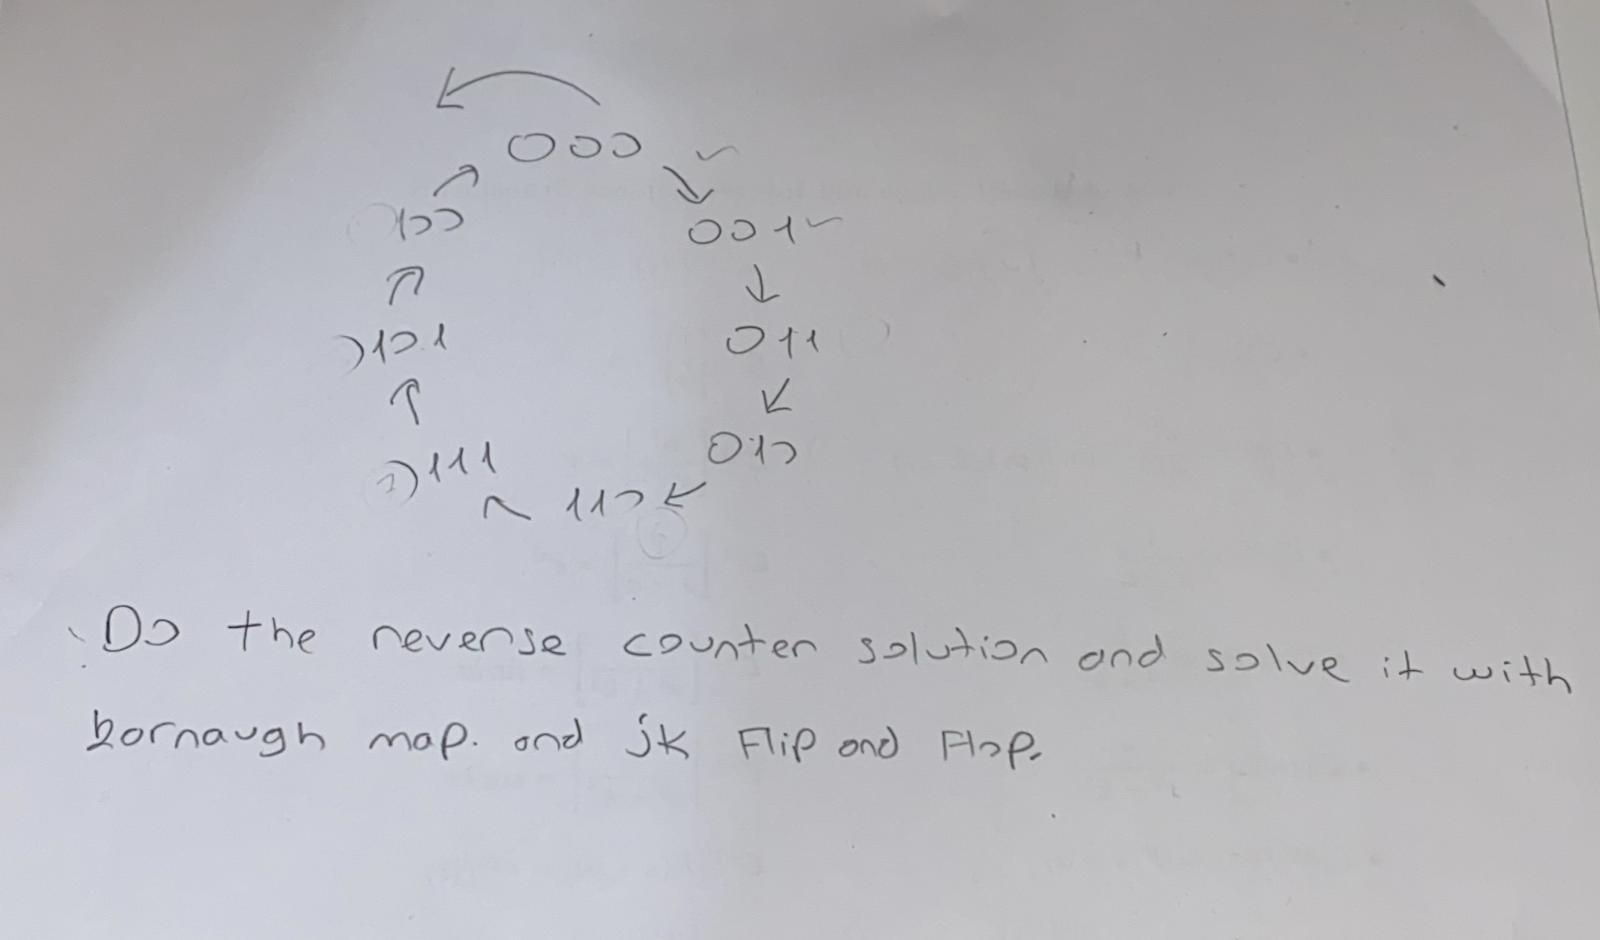 000
100 001
101 011
111 010
110
Do the reverse counter solution and solve it with
kornaugh map. and jk Flip and Flop.